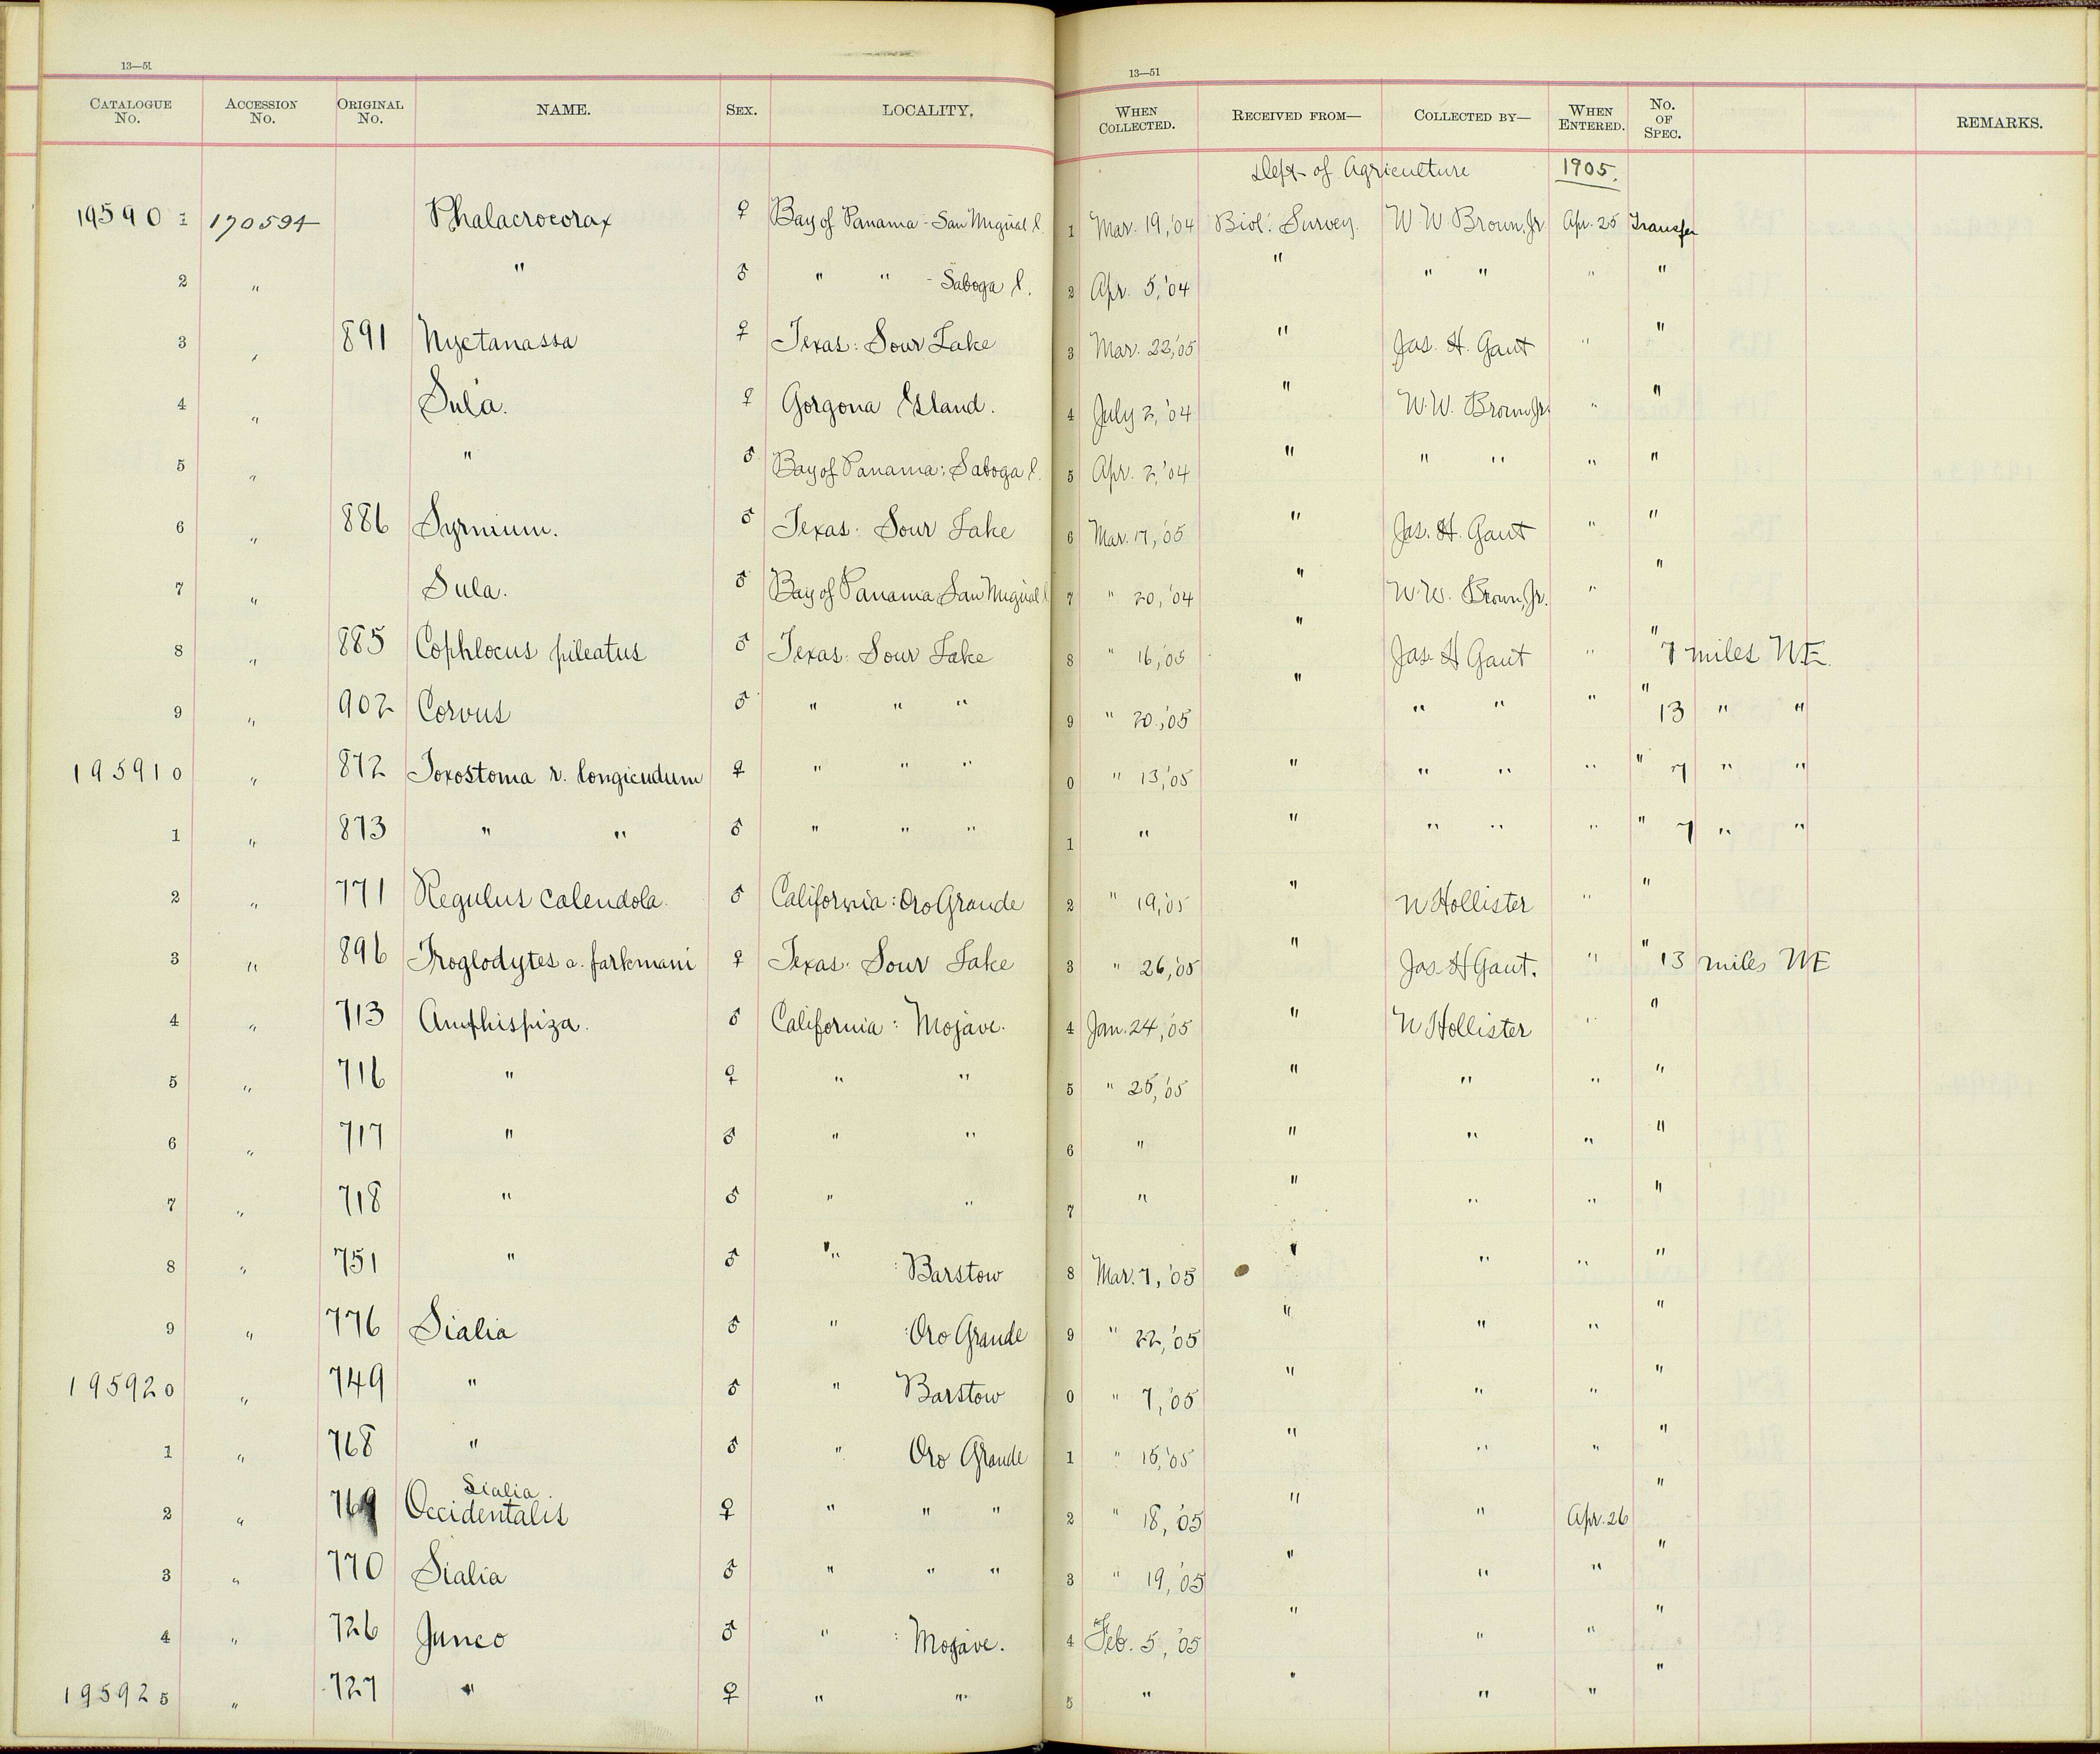 13—51 13—51
CATALOGUE No. ACCESSION No. ORIGINAL No. NAME. SEX. LOCALITY. WHEN COLLECTED. RECEIVED FROM— COLLECTED BY— WHEN ENTERED. No. OF SPEC. REMARKS.
Dept of Agriculture 1905.
195901 170594 Phalacrocorax ♀ Bay of Panama - San Miguel I. 1 Mar. 19,'04 Biol. Survey. W W Brown, Jr Apr. 25 Transfer
2 " " ♂ " " - Saboga I. 2 Apr. 5,'04 " " " " "
3 " 891 Nyctanassa ♀ Texas: Sour Lake 3 Mar. 22,'05 " Jas. H. Gaut " "
4 " Sula. ♀ Gorgona Island. 4 July 2,'04 " W.W. Brown Jr. " "
5 " " ♂ Bay of Panama: Saboga I. 5 Apr. 2,'04 " " " " "
6 " 886 Syrnium. ♂ Texas: Sour Lake 6 Mar. 17,'05 " Jas. H. Gaut " "
7 " Sula. ♂ Bay of Panama, San Miguel I 7 " 20,'04 " W.W. Brown, Jr. " "
8 " 885 Cophlocus pileatus ♂ Texas: Sour Lake 8 " 16,'05 " Jas. H Gaut " " 7 miles NE.
9 " 902 Corvus ♂ " " " 9 " 20,'05 " " " " " 13 " "
195910 " 872 Toxostoma r. longicudum ♀ " " " 0 " 13,'05 " " " " " 7 " "
1 " 873 " " ♂ " " " 1 " " " " " " 7 " "
2 " 771 Regulus calendola. ♂ California: Oro Grande 2 " 19,'05 " N Hollister " "
3 " 896 Troglodytes a. parkmani ♀ Texas: Sour Lake 3 " 26,'05 " Jas H Gaut. " " 13 miles NE
4 " 713 Amphispiza. ♂ California: Mojave. 4 Jan. 24,'05 " N Hollister " "
5 " 716 " ♀ " " 5 " 25,'05 " " " "
6 " 717 " ♂ " " 6 " " " " "
7 " 718 " ♂ " " 7 " " " " "
8 " 751 " ♂ " : Barstow 8 Mar. 7,'05 " " " "
9 " 776 Sialia ♂ " : Oro Grande 9 " 22,'05 " " " "
195920 " 749 " ♂ " Barstow 0 " 7,'05 " " " "
1 " 768 " ♂ " Oro Grande 1 " 15,'05 " " " "
Sialia.
2 " 769 Occidentalis ♀ " " " 2 " 18,'05 " " Apr. 26 "
3 " 770 Sialia ♂ " " " 3 " 19,'05 " " " "
4 " 726 Junco ♂ " : Mojave. 4 Feb. 5,'05 " " " "
195925 " 727 " ♀ " " 5 " " " " "